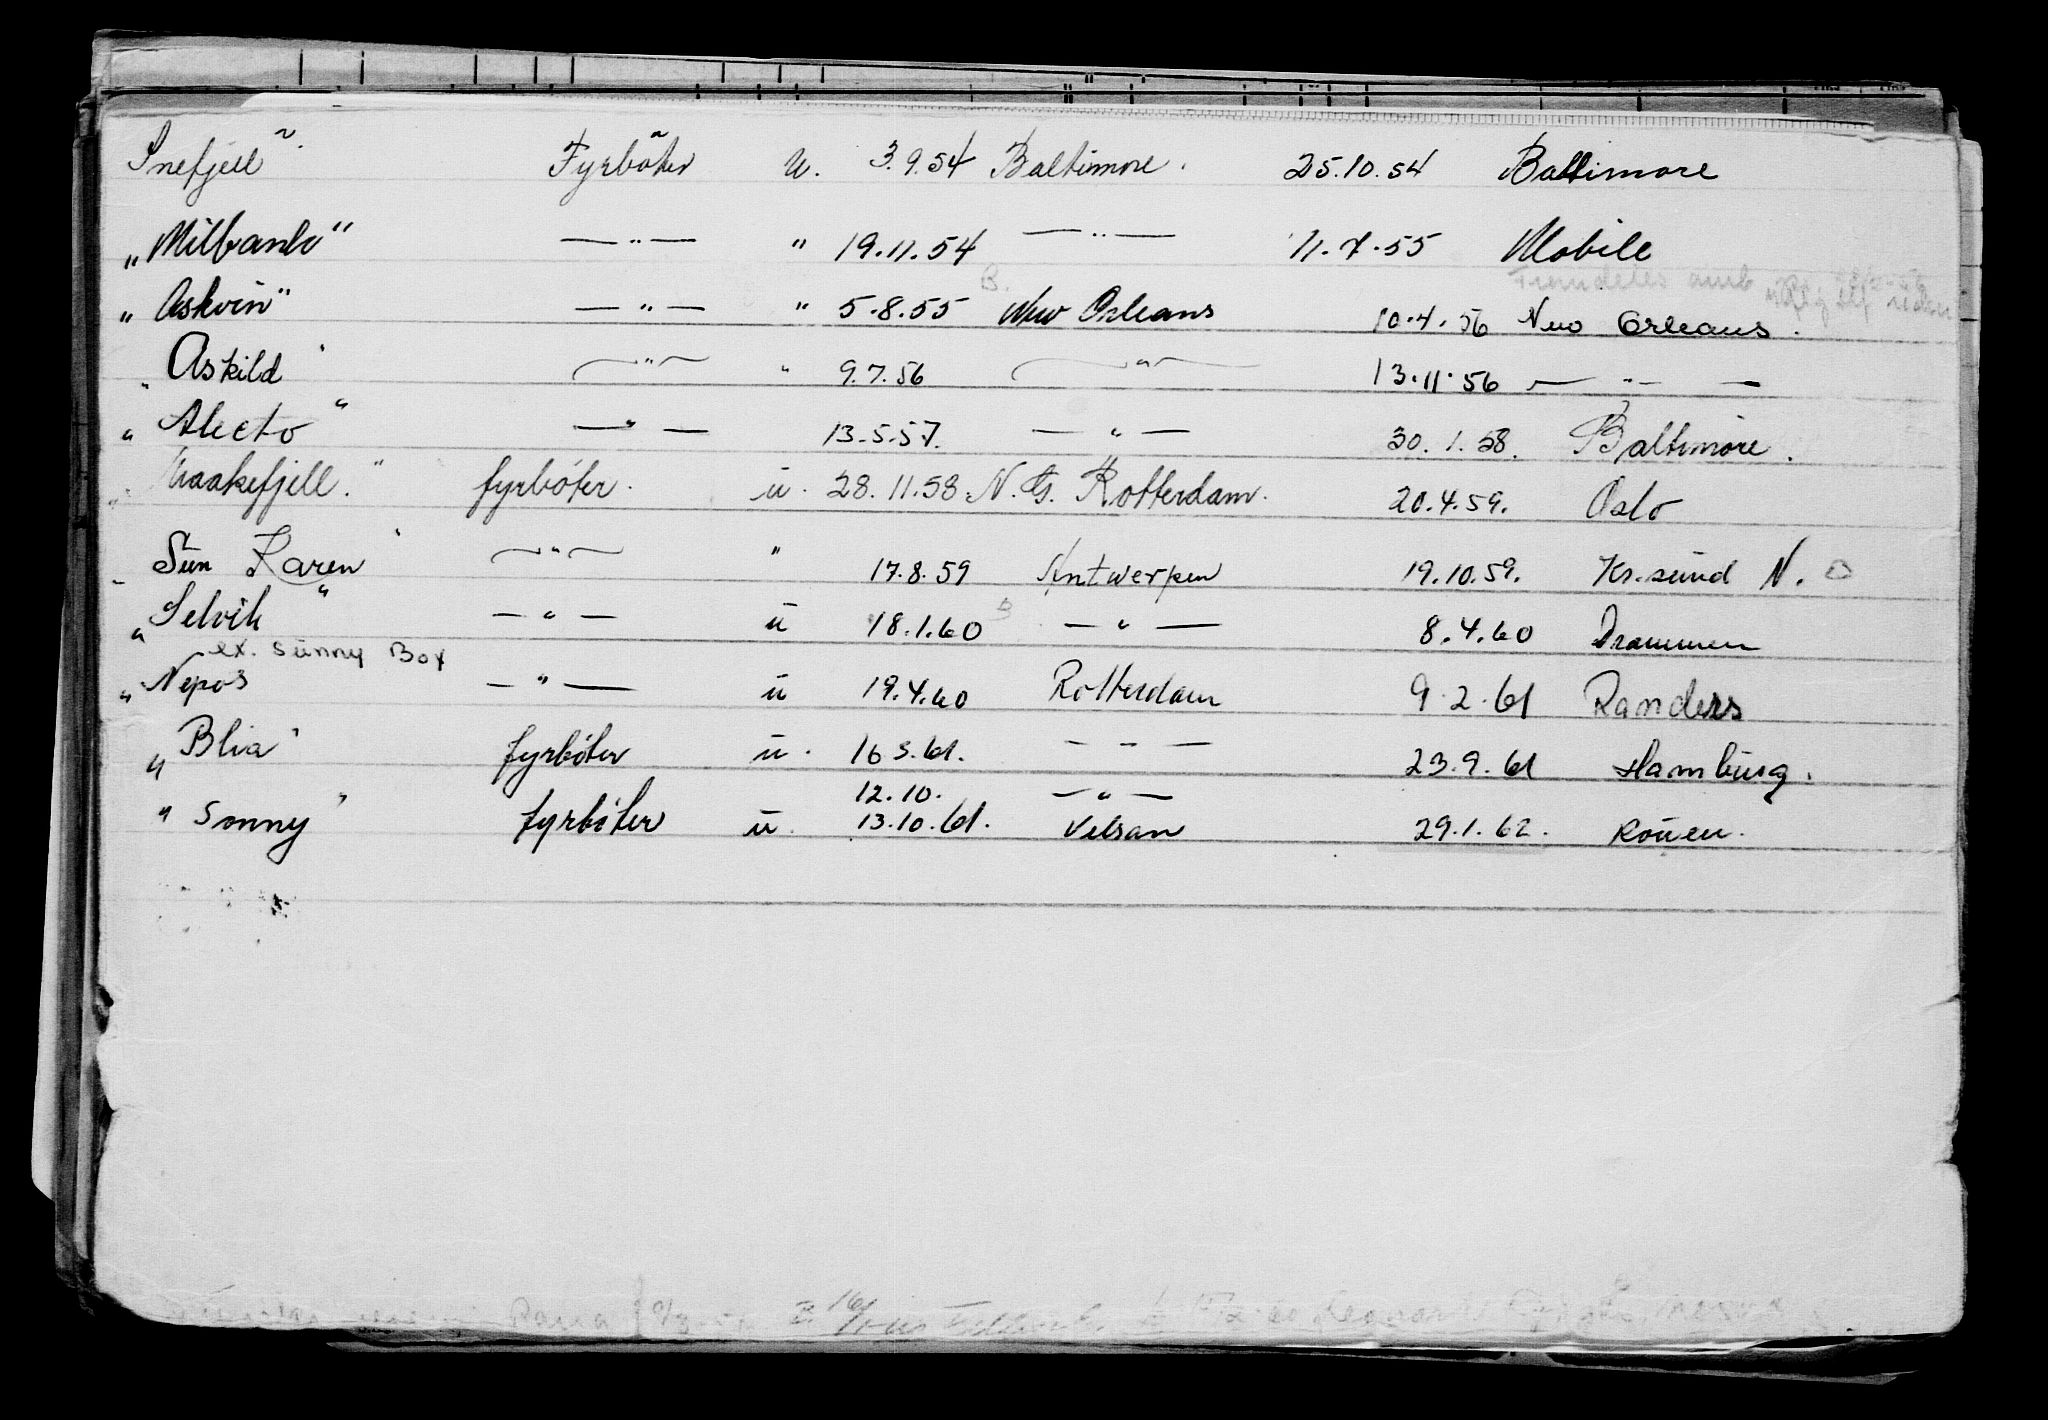 Snefjell" Fyrböter u. 3.9.54 Baltimore. 25.10.54 Baltimore
"Milbank" — " — " 19.11.54 — " — 11.7.55 Mobile
"Askvin" — " — " 5.8.55 New Orleans 10.4.56 New Orleans.
"Askild" — " — " 9.7.56 — " — 13.11.56 — " —
"Alecto" — " — 13.5.57. — " — 30.1.58. Baltimore.
fyrböter. u. 28.11.58. N. G. Rotterdam. 20.4.59. Oslo
"Sun Karen" — " — " 17.8.59 Antwerpen 19.10.59. Kr.sund N.
"Selvik" — " — u 18.1.60 — " — 8.4.60 Drammen
ex. Sunny Boy
"Nepos — " — u 19.4.60 Rotterdam 9.2.61 Randers
"Blia" fyrböter u. 16 3.61. — " — 23.9.61 Hamburg.
12.10. — " —
"Sonny" fyrböter u. 13.10.61. Velsan 29.1.62. Rouen.